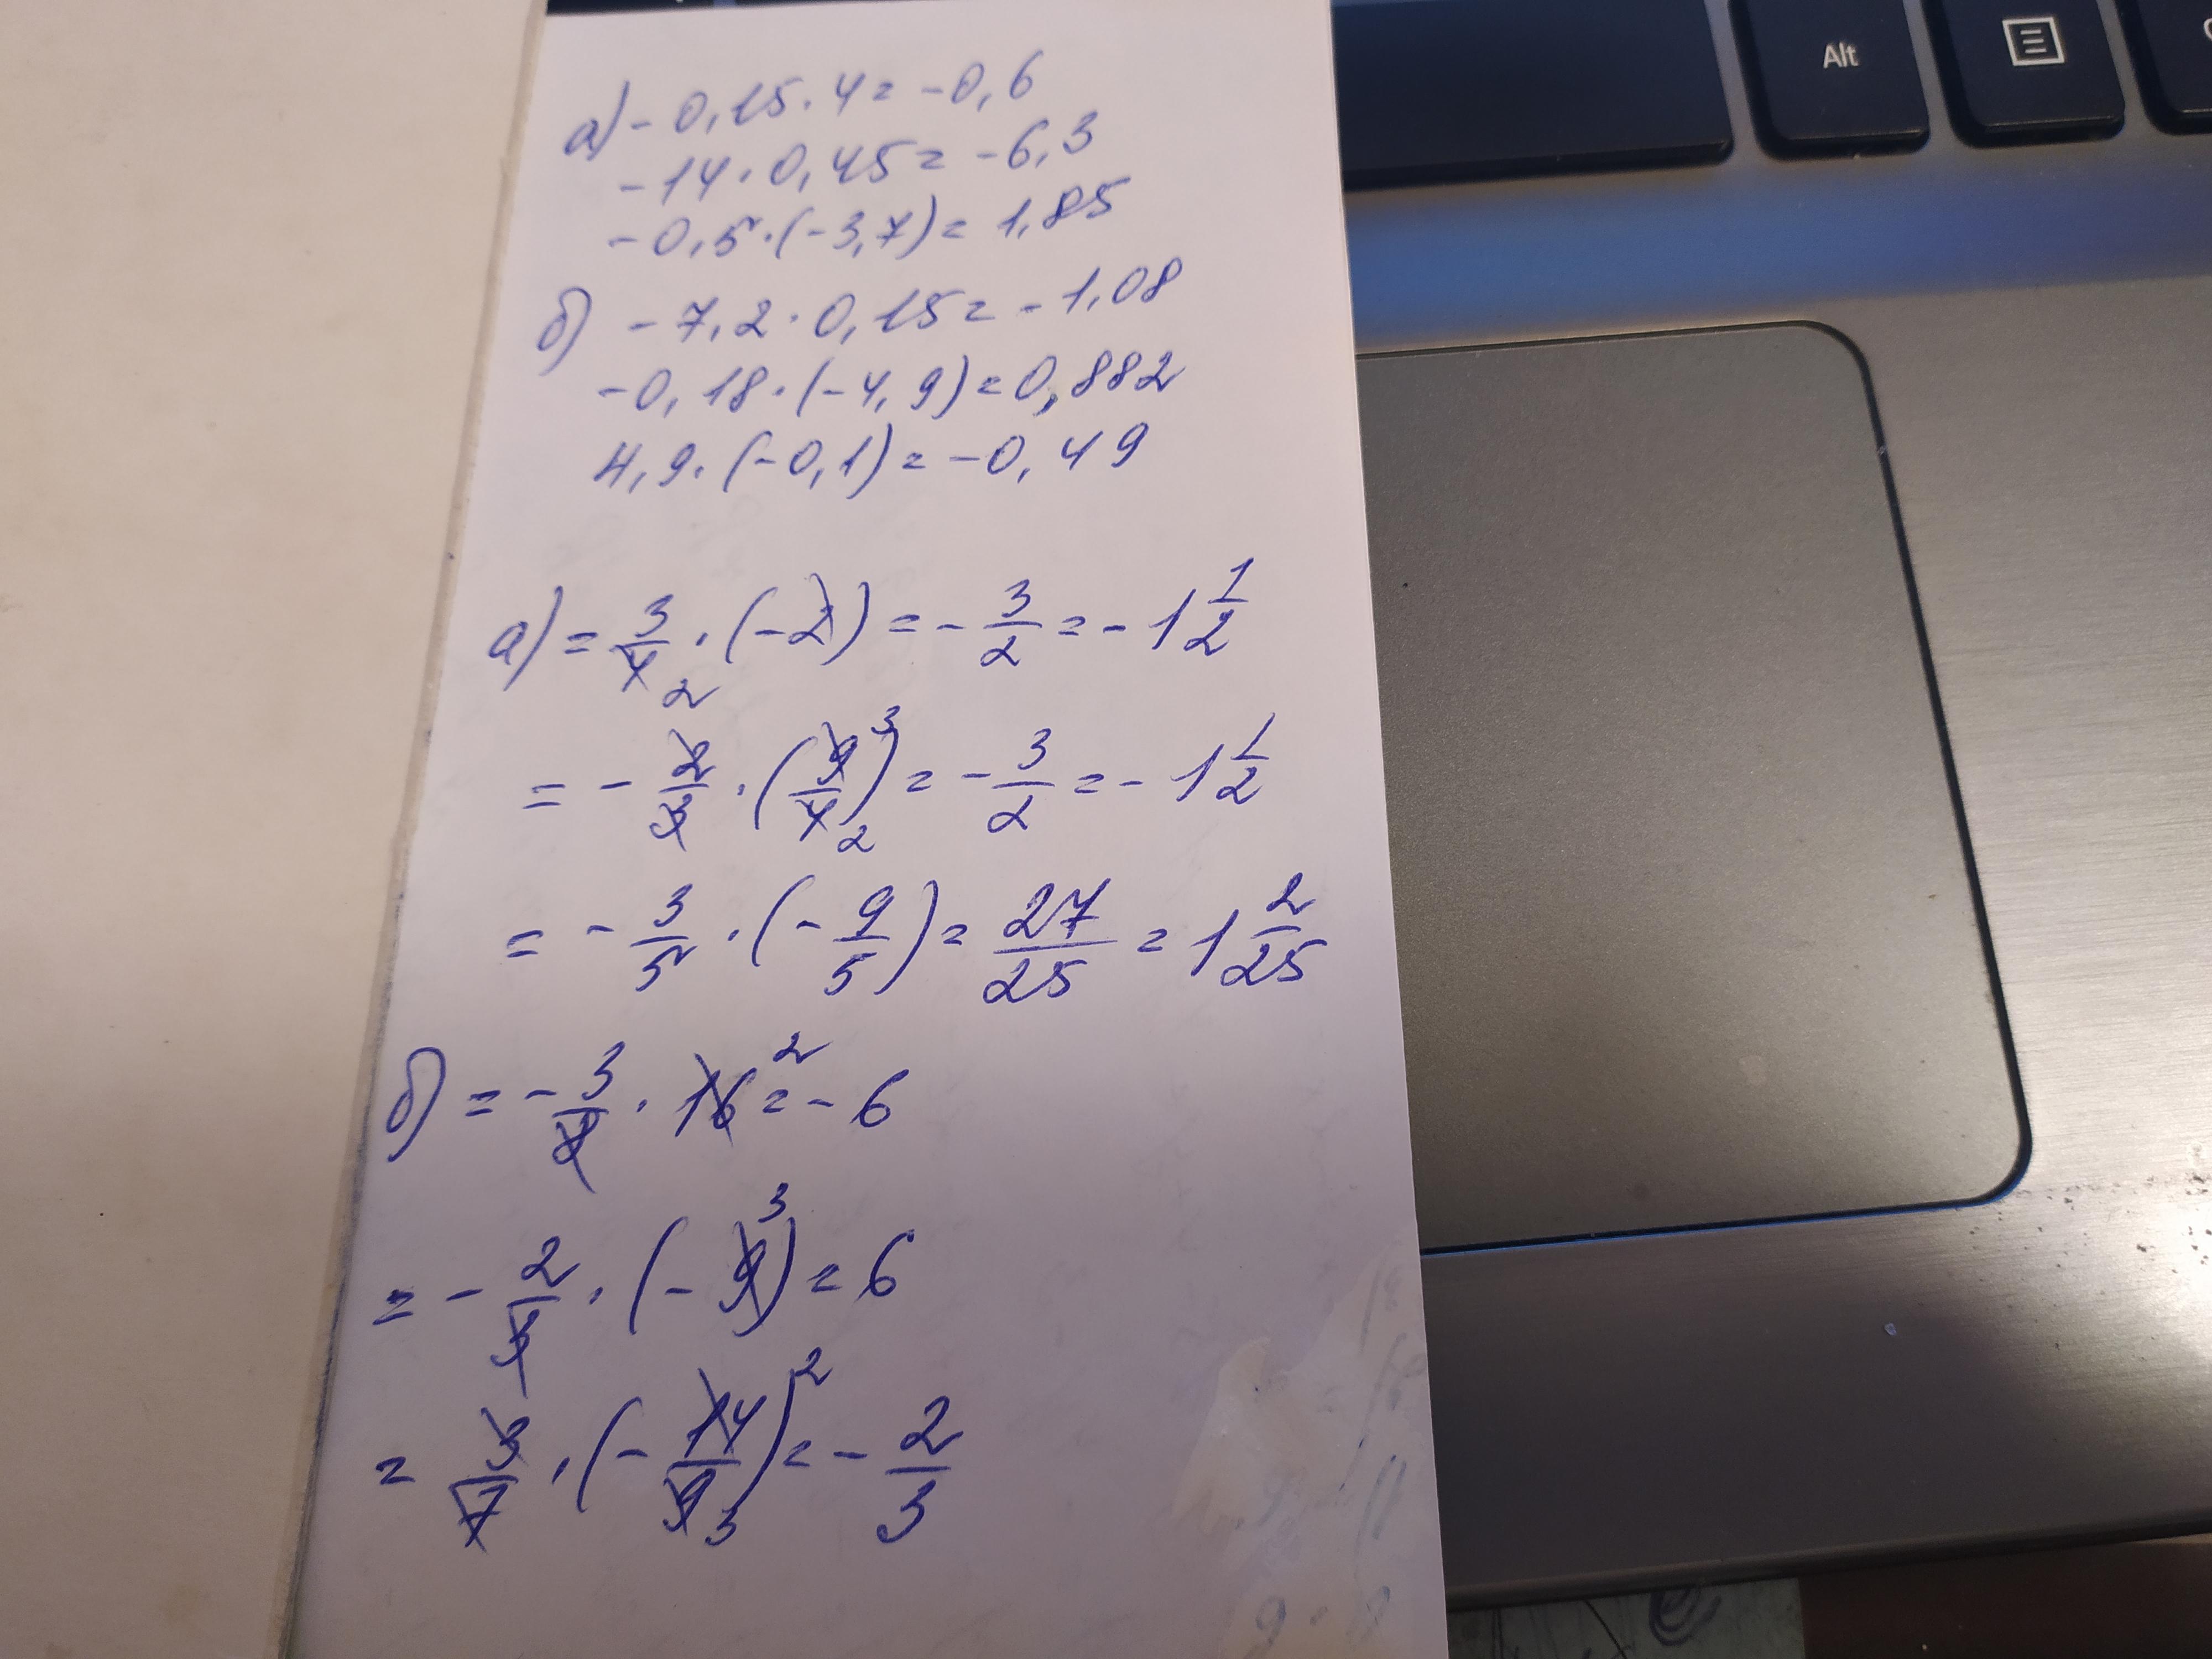 Alt
а) - 0,15 · 4 = -0,6
-14 · 0,45 = -6,3
-0,5 · (-3,7) = 1,85
б) -7,2 · 0,15 = -1,08
-0,18 · (-4,9) = 0,882
4,9 · (-0,1) = -0,49
а) = 3/4 2 · (-2) = - 3/2 = - 1 1/2
= - 2/3 · (9/4) 3 2 = - 3/2 = - 1 1/2
= - 3/5 · (- 9/5) = 27/25 = 1 2/25
б) = - 3/8 · 16 2 = - 6
= - 2/3 · (- 9) 3 = 6
= 3/7 · (- 14/9) 2 3 = - 2/3